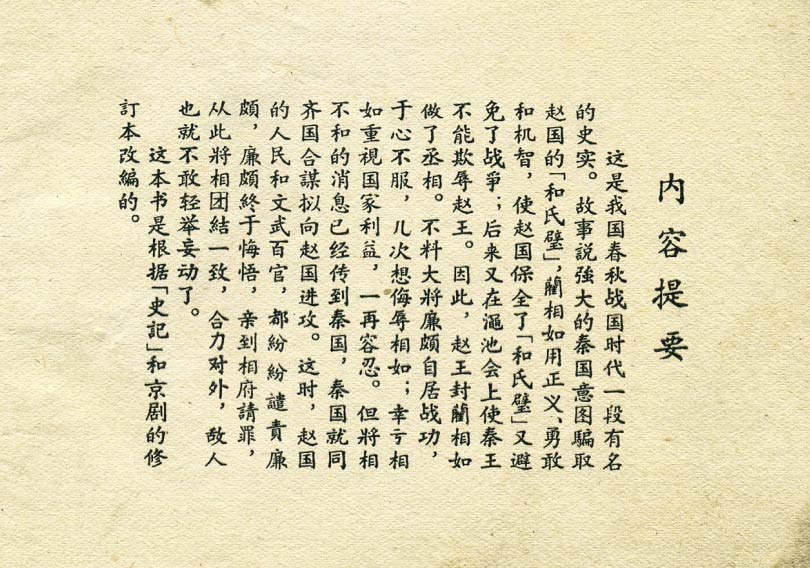 内容提要
这是我国春秋战国时代一段有名
的史实。故事説強大的秦国意图騙取
赵国的「和氏璧」，藺相如用正义、勇敢
和机智，使赵国保全了「和氏璧」又避
免了战爭；后来又在澠池会上使秦王
不能欺辱赵王。因此，赵王封藺相如
做了丞相。不料大將廉頗自居战功，
于心不服，几次想侮辱相如；幸亏相
如重視国家利益，一再容忍。但將相
不和的消息已经传到秦国，秦国就同
齐国合謀拟向赵国进攻。这时，赵国
的人民和文武百官，都紛紛譴責廉
頗，廉頗終于悔悟，亲到相府請罪，
从此將相团結一致，合力对外，敌人
也就不敢轻举妄动了。
这本书是根据「史記」和京剧的修
訂本改編的。